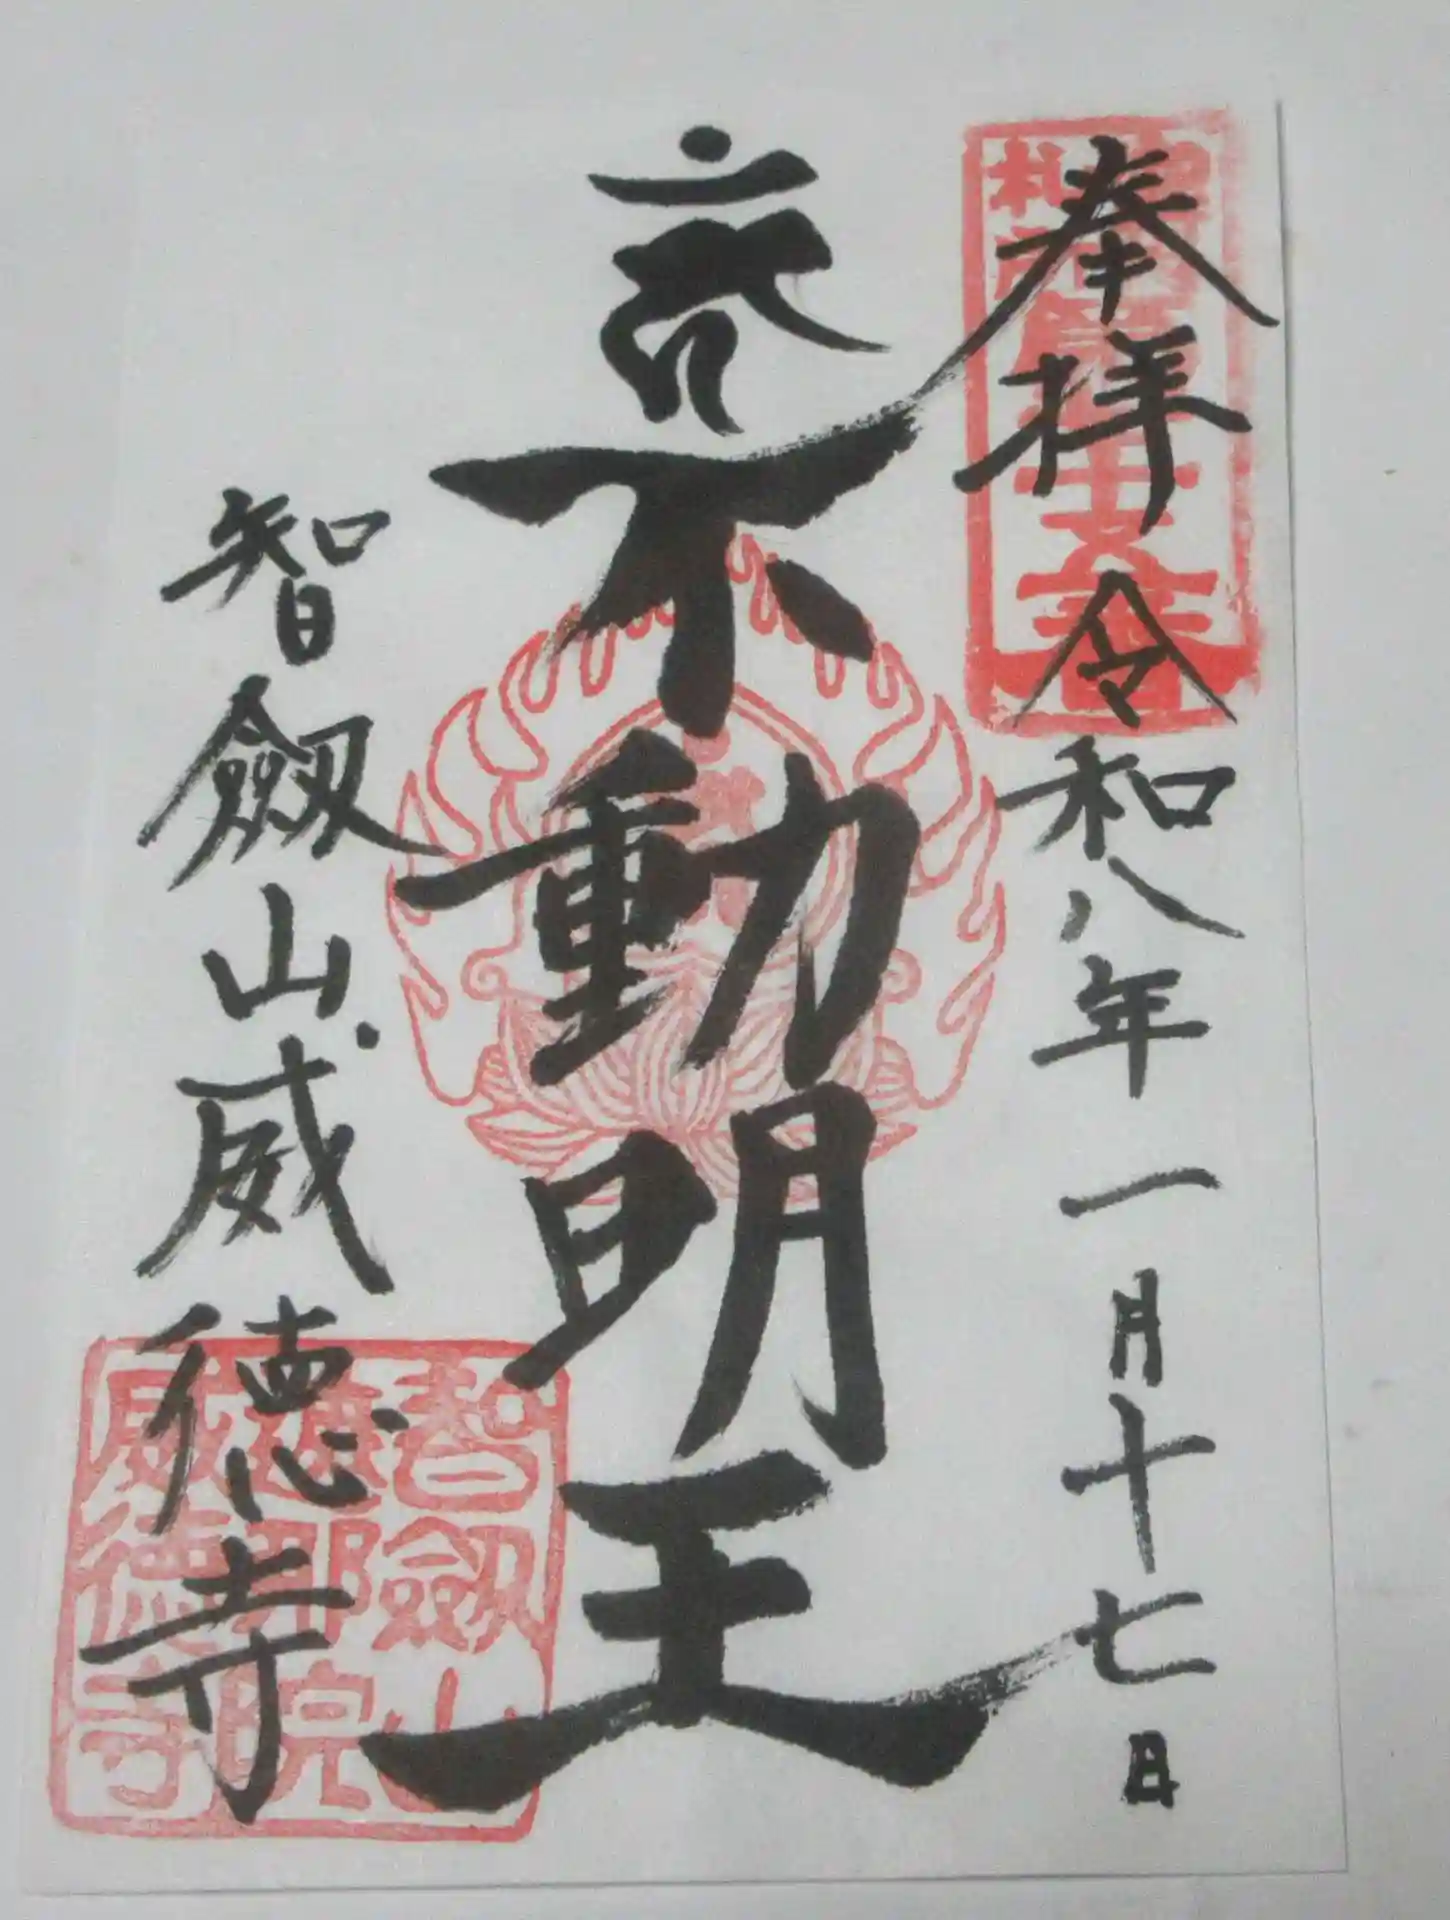 奉拝 令和八年一月十七日
不動明王
智劔山威徳寺
智劔山
遮那院
威徳寺